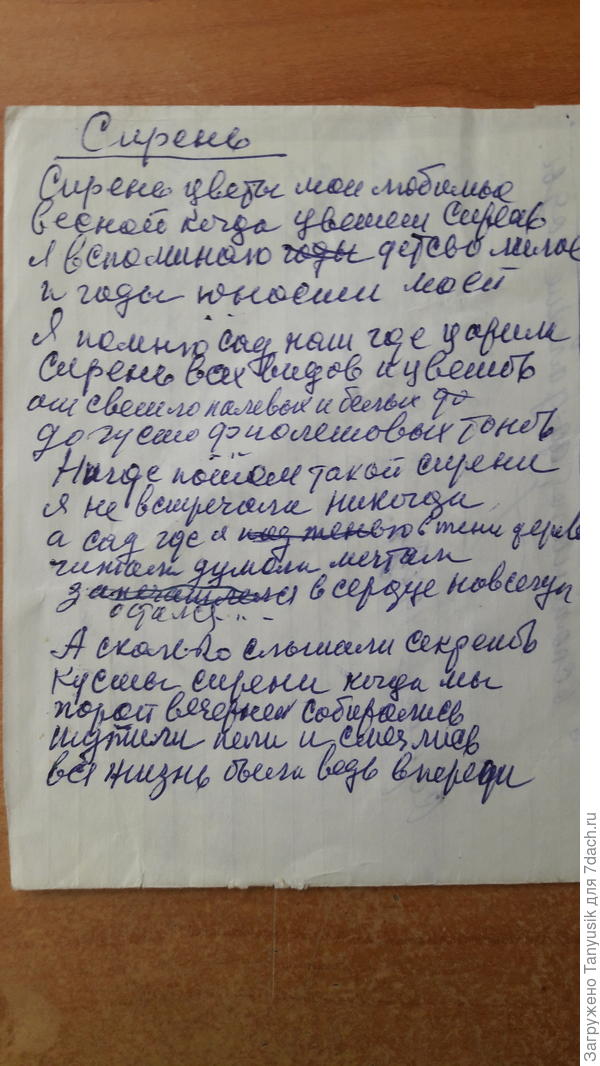 Сирень
Сирень цветы мои любимые
весной когда цветет сирень
я вспоминаю годы детство милое
и годы юности моей
Я помню сад наш где царит
сирень всех видов и цветов
от светло палевых и белых до
до густо фиолетовых тонов
Нигде потом такой сирени
я не встречала никогда
а сад где я под тенью в тени дерев
читали думали мечтали
запечатлелся в сердце навсегда
остался...
А сколько слышали секретов
кусты сирени когда мы
порой вечерней собирались
шутили пели и смеялись
вся жизнь была ведь впереди
Загружено Tanyusik для 7dach.ru